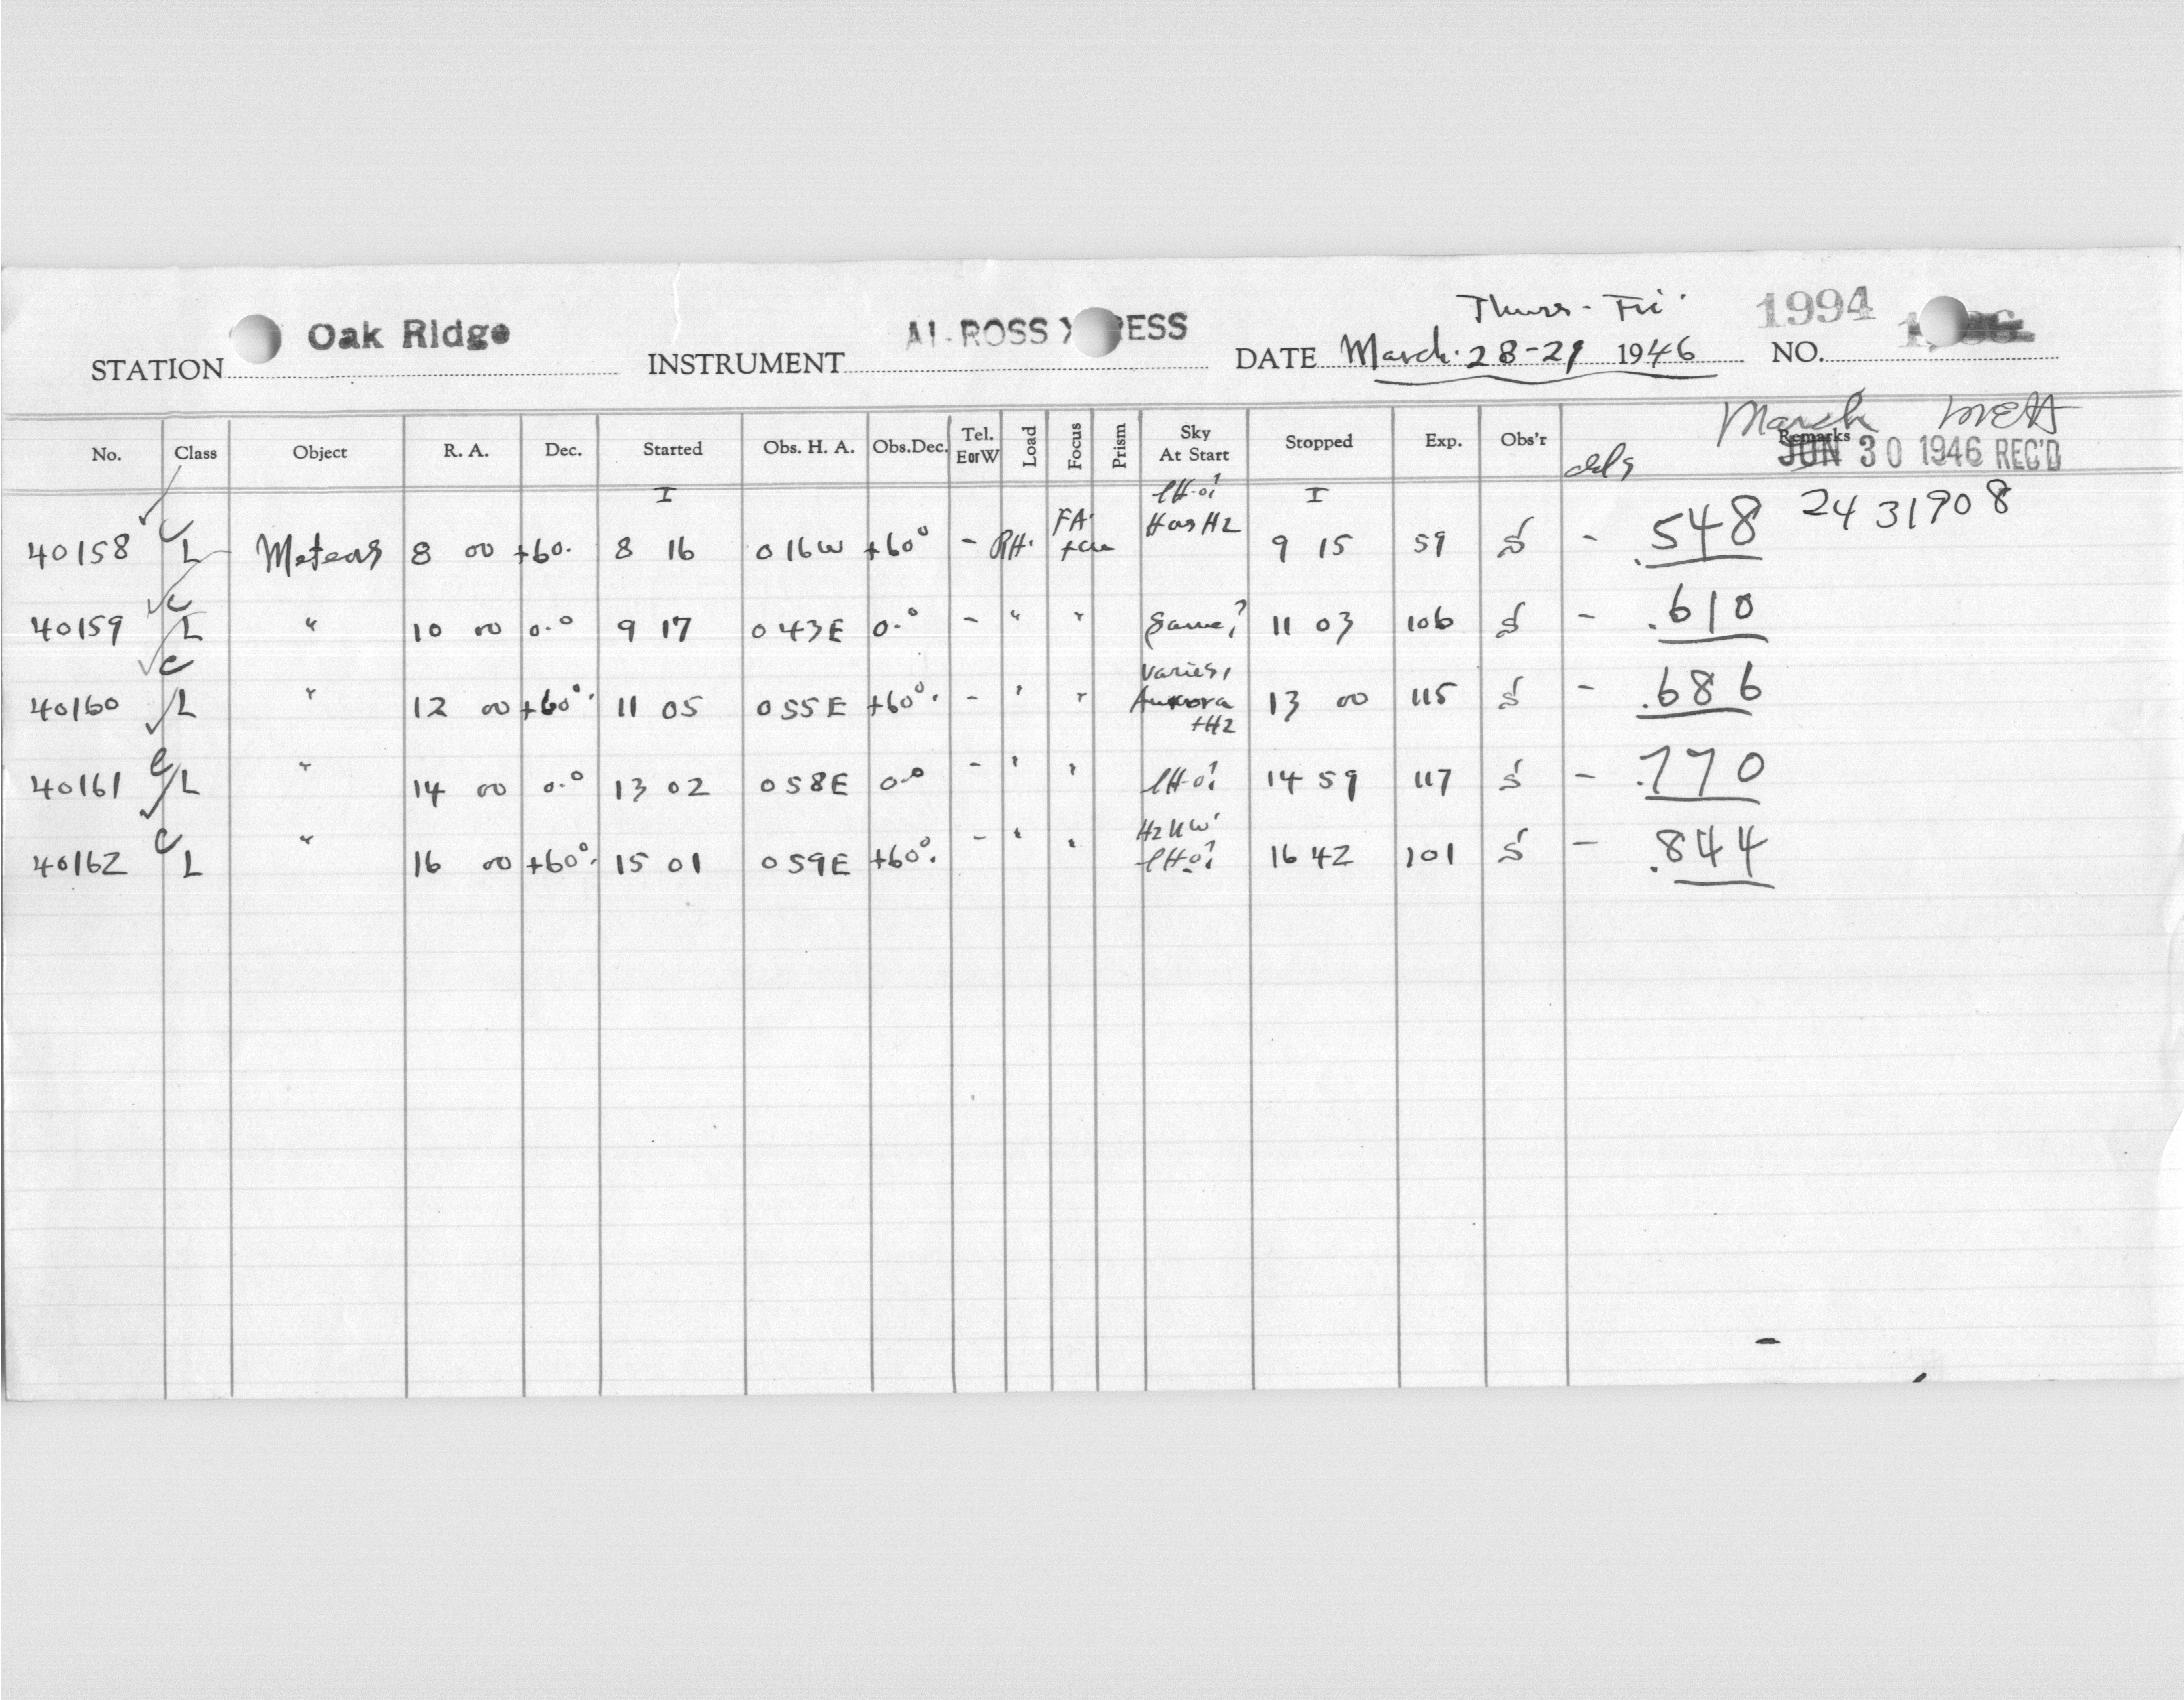 Thurs - Fri.
STATION Oak Ridge INSTRUMENT AI-ROSS XPRESS DATE March. 28-29 1946 NO. 1994
March
No. Class Object R. A. Dec. Started Obs. H. A. Obs.Dec. Tel. EorW Load Focus Prism Sky At Start Stopped Exp. Obs'r Remarks
JUN 30 1946 REC'D
I I
40158 C L Meteors 8 00 +60. 8 16 0 16W +60° - Has Hz 9 15 59 - .548 2431908
40159 C L " 10 00 0.° 9 17 0 43E 0.° - " " Same? 11 03 106 - .610
40160 C L " 12 00 +60°. 11 05 0 55E +60°. - " " Varies, Aurora +Hz 13 00 115 - .686
40161 C L " 14 00 0.° 13 02 0 58E 0.° - " " 14 59 117 - .770
40162 C L " 16 00 +60°. 15 01 0 59E +60°. - " " 16 42 101 - .844